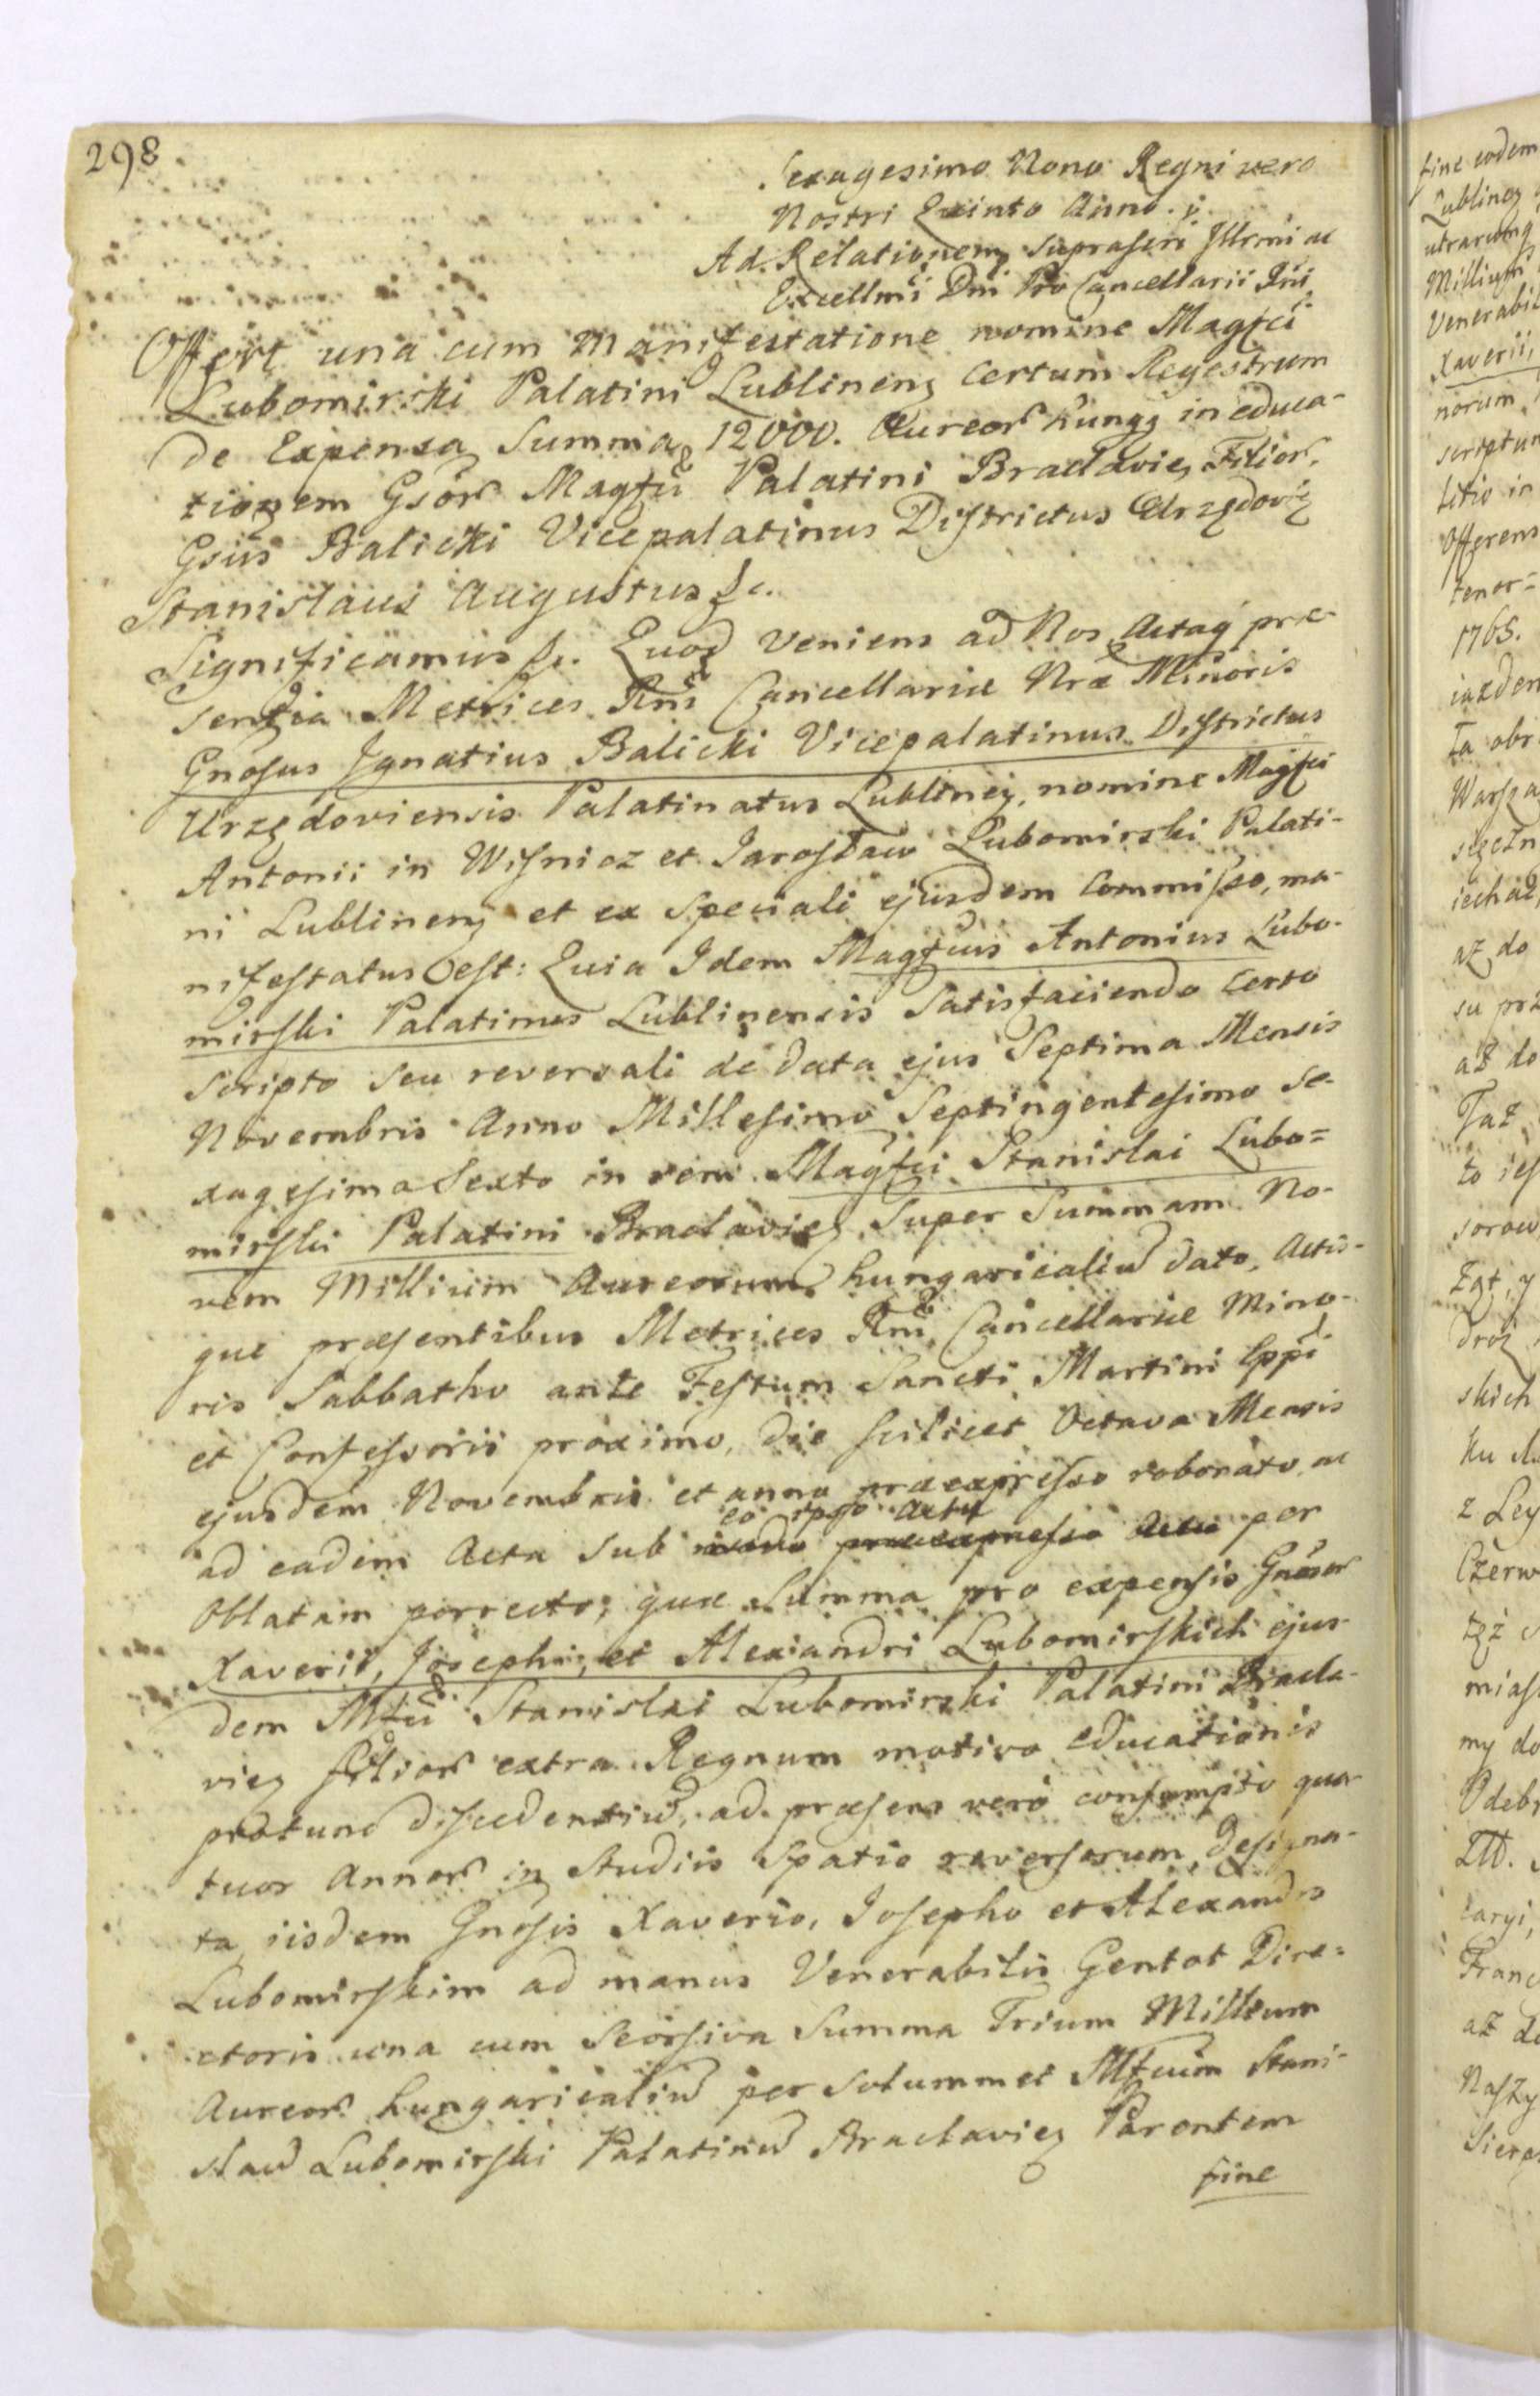 298
Sexagesimo Nono Regni vero
Nostri Quinto Anno.
Ad Relationem suprascri Illrmi ac
Excellmi Dni Pro Cancellarii Rni
Offert una cum Manifestatione nomine Magfci
Lubomirski Palatini Lublinens certum Regestrum
de Expensa Summa 12000. Aureor Hungg in educa-
tionem Gsor Magfci Palatini Braclavien Filior.
Gsus Balicki Vicepalatinus Districtus Urzędovien
Stanislaus Augustus &c.
Significamus &c. Quod veniens ad Nos Actaq prae-
sentia Metrices Rni Cancellariae Nrae Minoris
Gnosus Ignatius Balicki Vicepalatinus Districtus
Urzędoviensis Palatinatus Lublinen, nomine Magfci
Antonii in Wisnicz et Jarosław Lubomirski Palati-
ni Lublinens et ex speciali ejusdem commisso, ma-
nifestatus est: Quia Idem Magfcus Antonius Lubo-
mirski Palatinus Lublinensis Satisfaciendo certo
scripto seu reversali de data ejus Septima Mensis
Novembris Anno Millesimo Septingentesimo Se-
xagesimo Sexto in rem Magfci Stanislai Lubo=
mirski Palatini Braclavien Super Summam No-
vem Millium Aureorum hungaricaliu dato, Actis-
que praesentibus Metrices Rni Cancellariae Mino-
ris Sabbatho ante Festum Sancti Martini Eppi
et Confessoris proximo, die scilicet Octava Mensis
ejusdem Novembris et anno praeexpresso roborato ac
eo ipso Actu
ad eadem Acta sub praeexpresso Actu per
Oblatam porrecto; quae Summa pro expensis Gnosor
Xaverii, Josephi, et Alexandri Lubomirskich ejus
dem Mfci Stanislai Lubomirski Palatini Bracla-
vien filior extra Regnum motivo educationis
protunc discedentiu, ad praesens vero consumpto qua-
tuor Annor in studiis spatio reversorum, designa-
ta iisdem Gnosis Xaverio, Josepho et Alexandro
Lubomirskim ad manus Venerabilis Gentot Dire=
ctoris una cum Seorsiva Summa Trium Millium
Aureor hungaricaliu per solummet Mfcum Stani-
slau Lubomirski Palatinu Braclavien Parentem
fine
fine eodem
Lublinen
utrarumq
Millium
Venerabil
Xaverii,
norum
scriptum
Offerens
tenor=
1765.
Ta obr
Warsza
iechać,
aż do
su prz
aż do
Taż
to ies
skich
z Ley
Czerw
mias
my do
Odebr
Franc
aż do
Naszy
Sierp